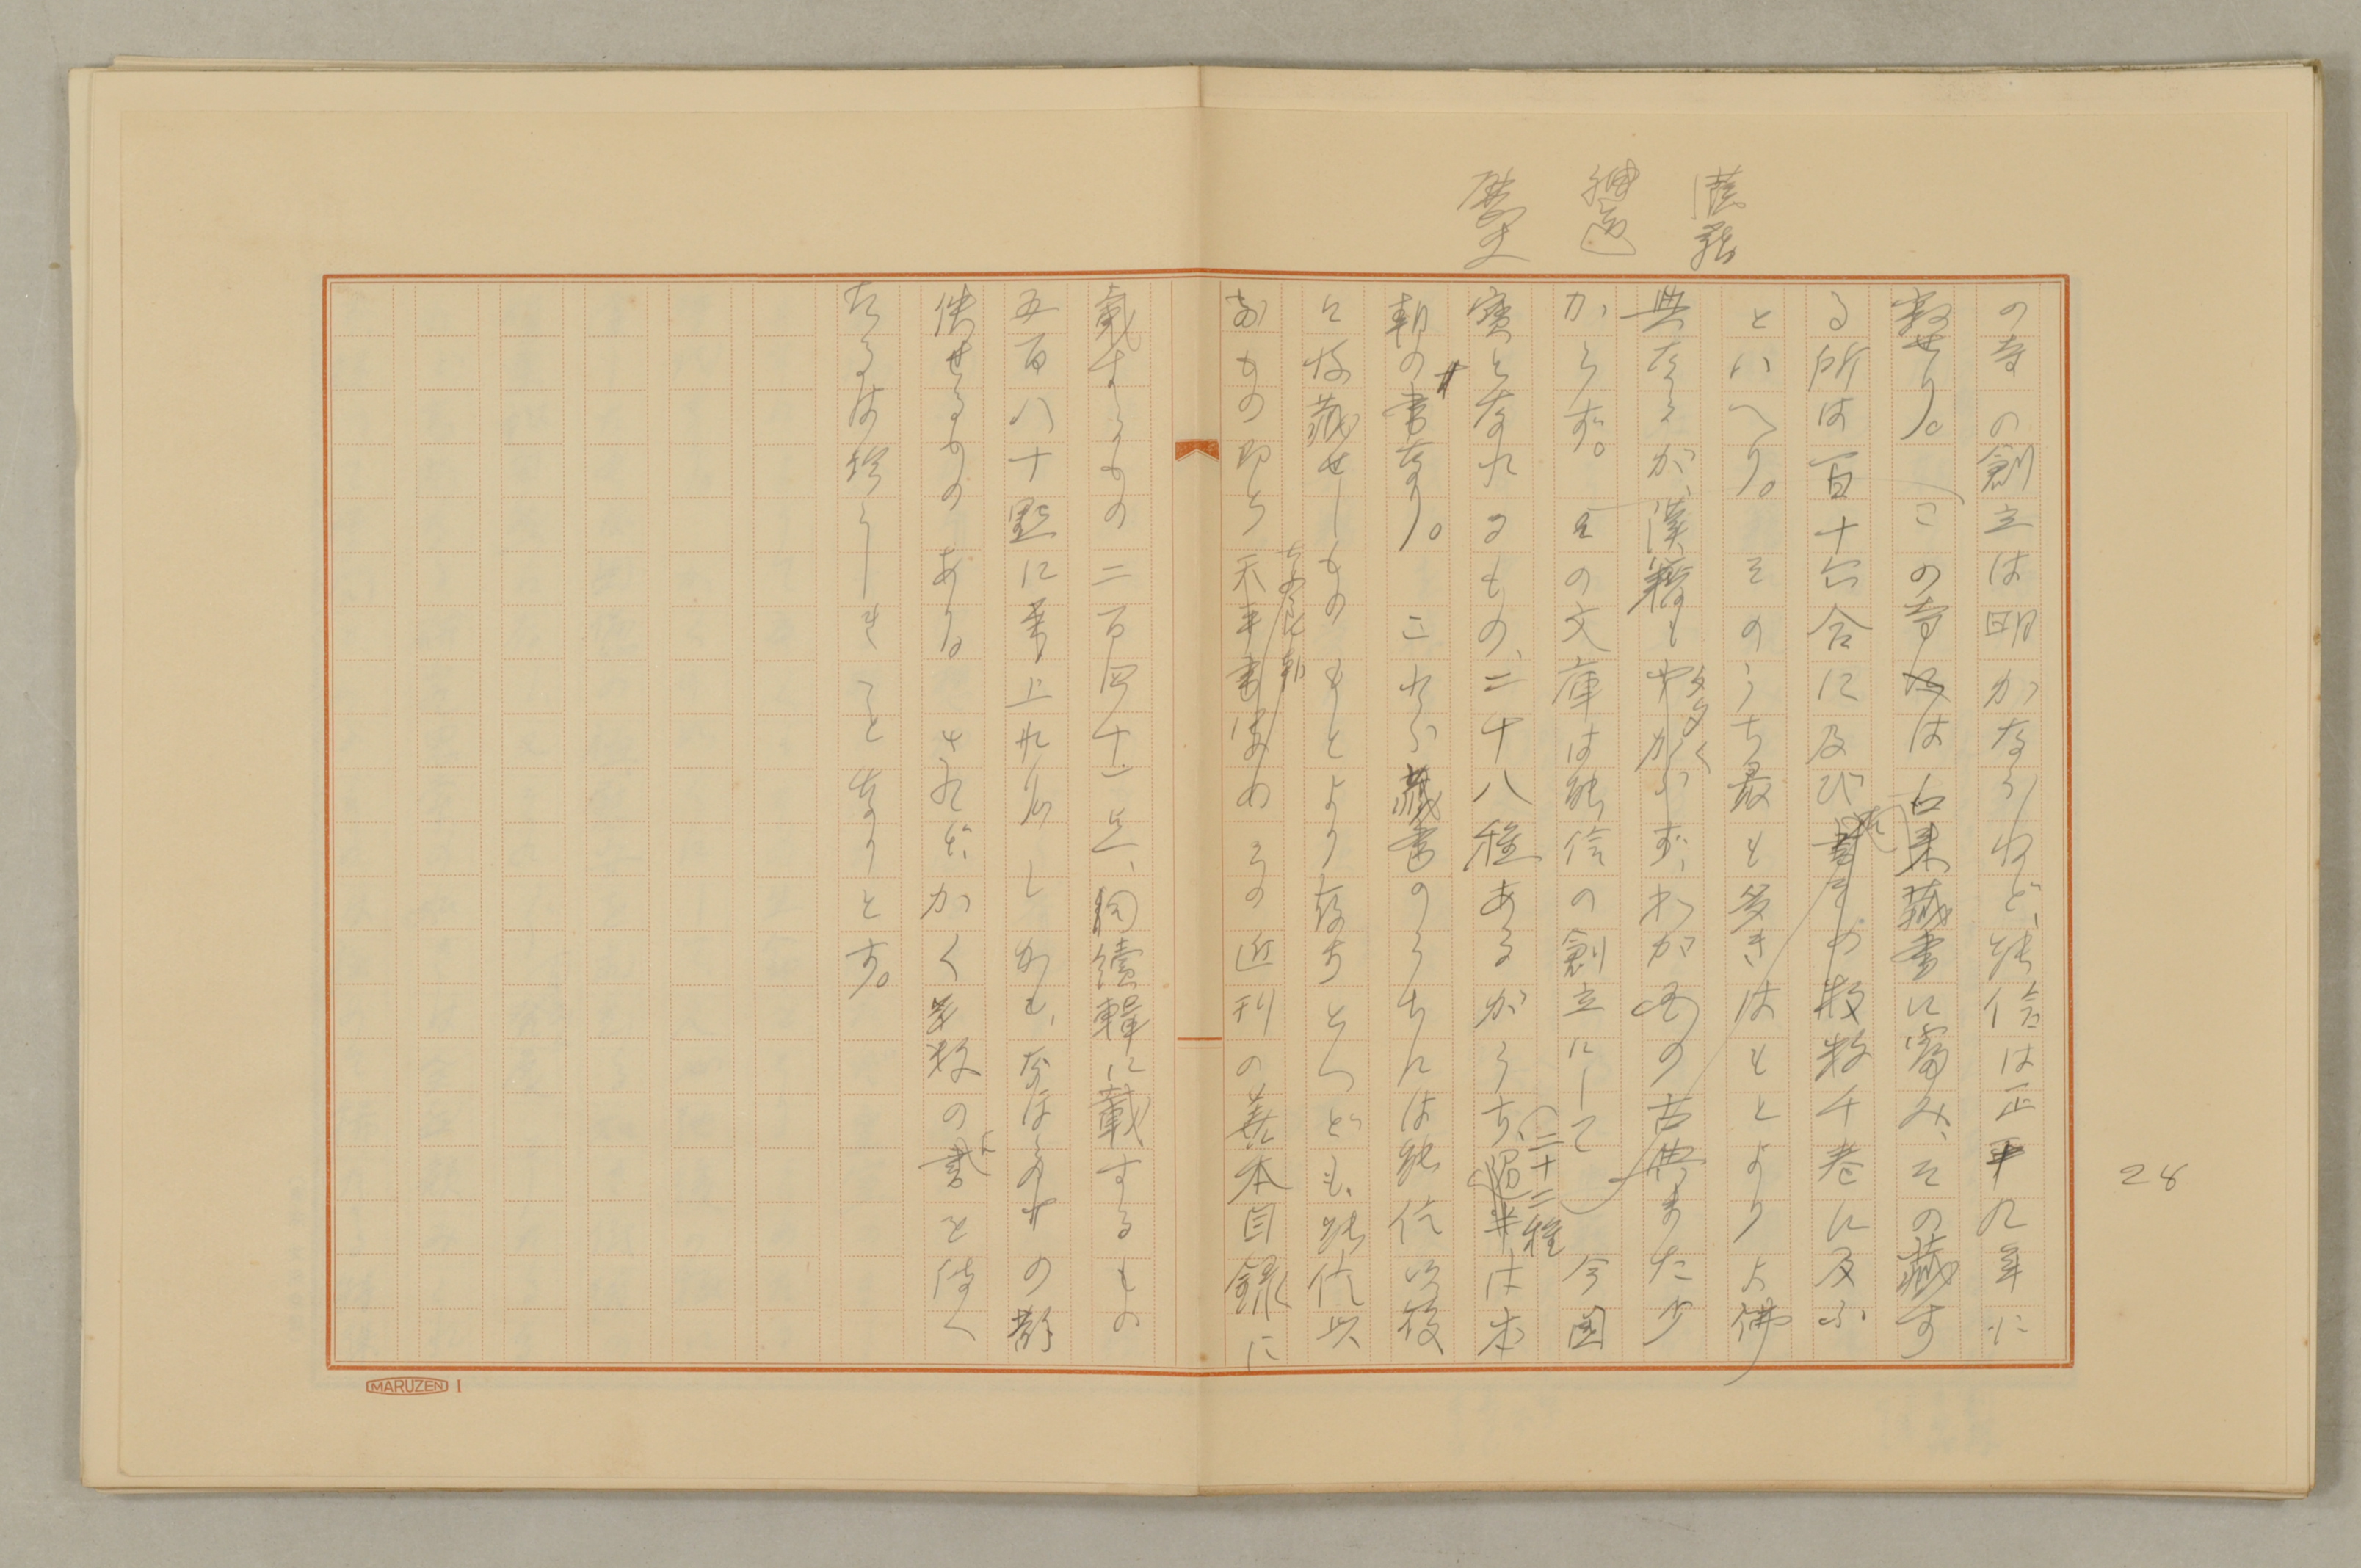 28
の寺の創立は明かならねど、能信は正平九年に
寂せり。この寺は古来蔵書に富み、その蔵す
る所は百十六合に及びその数数千巻に及ぶ
といへり。そのうち最も多きはもとより佛
典なるが、漢籍も多く、わが國の古典また少
からず。この文庫は能信の創立にして今國
寶となれるもの、二十八種あるがうち、二十二種は本
朝の書なり。これら蔵書のうちには能信以後
に收蔵せしものもとより存すといへども、能信以
前もの即ち奈良朝
近刊の善本目録に
載するもの二百四十一点、同續輯に載するもの
五百八十點に上れり。しかも、なほその散
佚せるもの あり。されど、かく多数の書を傳へ
たるは珍らしきことなりとす。
MARUZEN 1